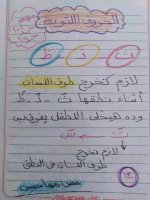 الحروف اللثوية
ث ذ ظ
لازم تخرج طرف اللسان
أثناء نطقها ث - ذ - ظ
وده هيخلى الطفل يفرق بين
ث ← س
لازم نخرج
طرف اللسان فى النطق